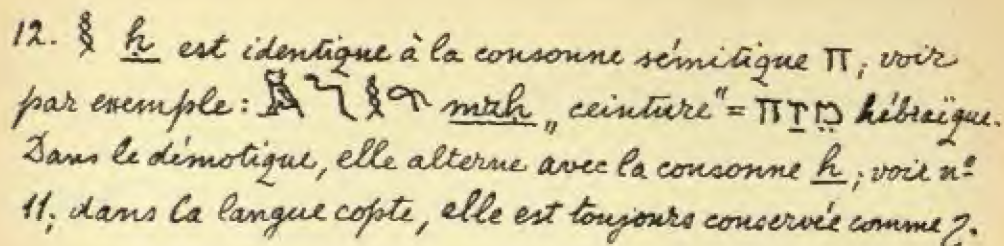 12. 𓎛 ḥ est identique à la consonne sémitique ח; voir
par exemple: mꜣḥ „ceinture" = מֵזַח hébraïque.
Dans le démotique, elle alterne avec la consonne h; voir nº
11; dans la langue copte, elle est toujours conservée comme ϩ.